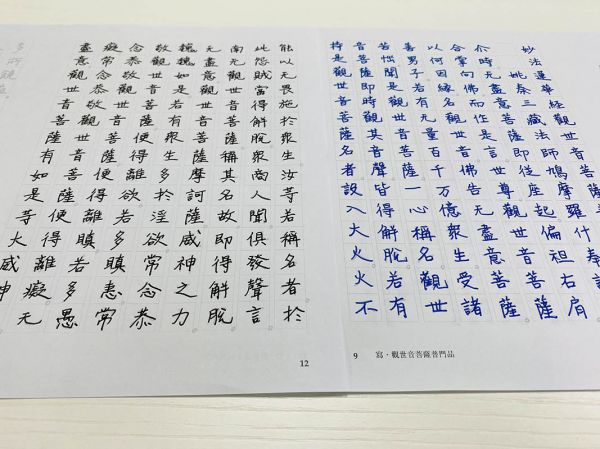 妙法蓮華經觀世音菩薩普
姚秦三藏法師鳩摩羅什奉詔
尒時无盡意菩薩即從座起偏袒右肩
合掌向佛而作是言世尊觀世音菩薩
以何因緣名觀世音佛告无盡意菩薩
善男子若有无量百千万億眾生受諸
苦惱聞是觀世音菩薩一心稱名觀世
音菩薩即時觀其音聲皆得解脫若有
持是觀世音菩薩名者設入大火火不
9 寫・觀世音菩薩普門品
能以无畏施於眾生汝等若稱名者於
此怨賊當得解脫眾商人聞俱發聲言
南无觀世音菩薩稱其名故即得解脫
无盡意觀世音菩薩摩訶薩威神之力
巍巍如是若有眾生多於淫欲常念恭
敬觀世音菩薩便得離欲若多瞋恚常
念恭敬觀世音菩薩便得離瞋若多愚
癡常念恭敬觀世音菩薩便得離癡无
盡意觀世音菩薩有如是等大威神
12
多所饒益